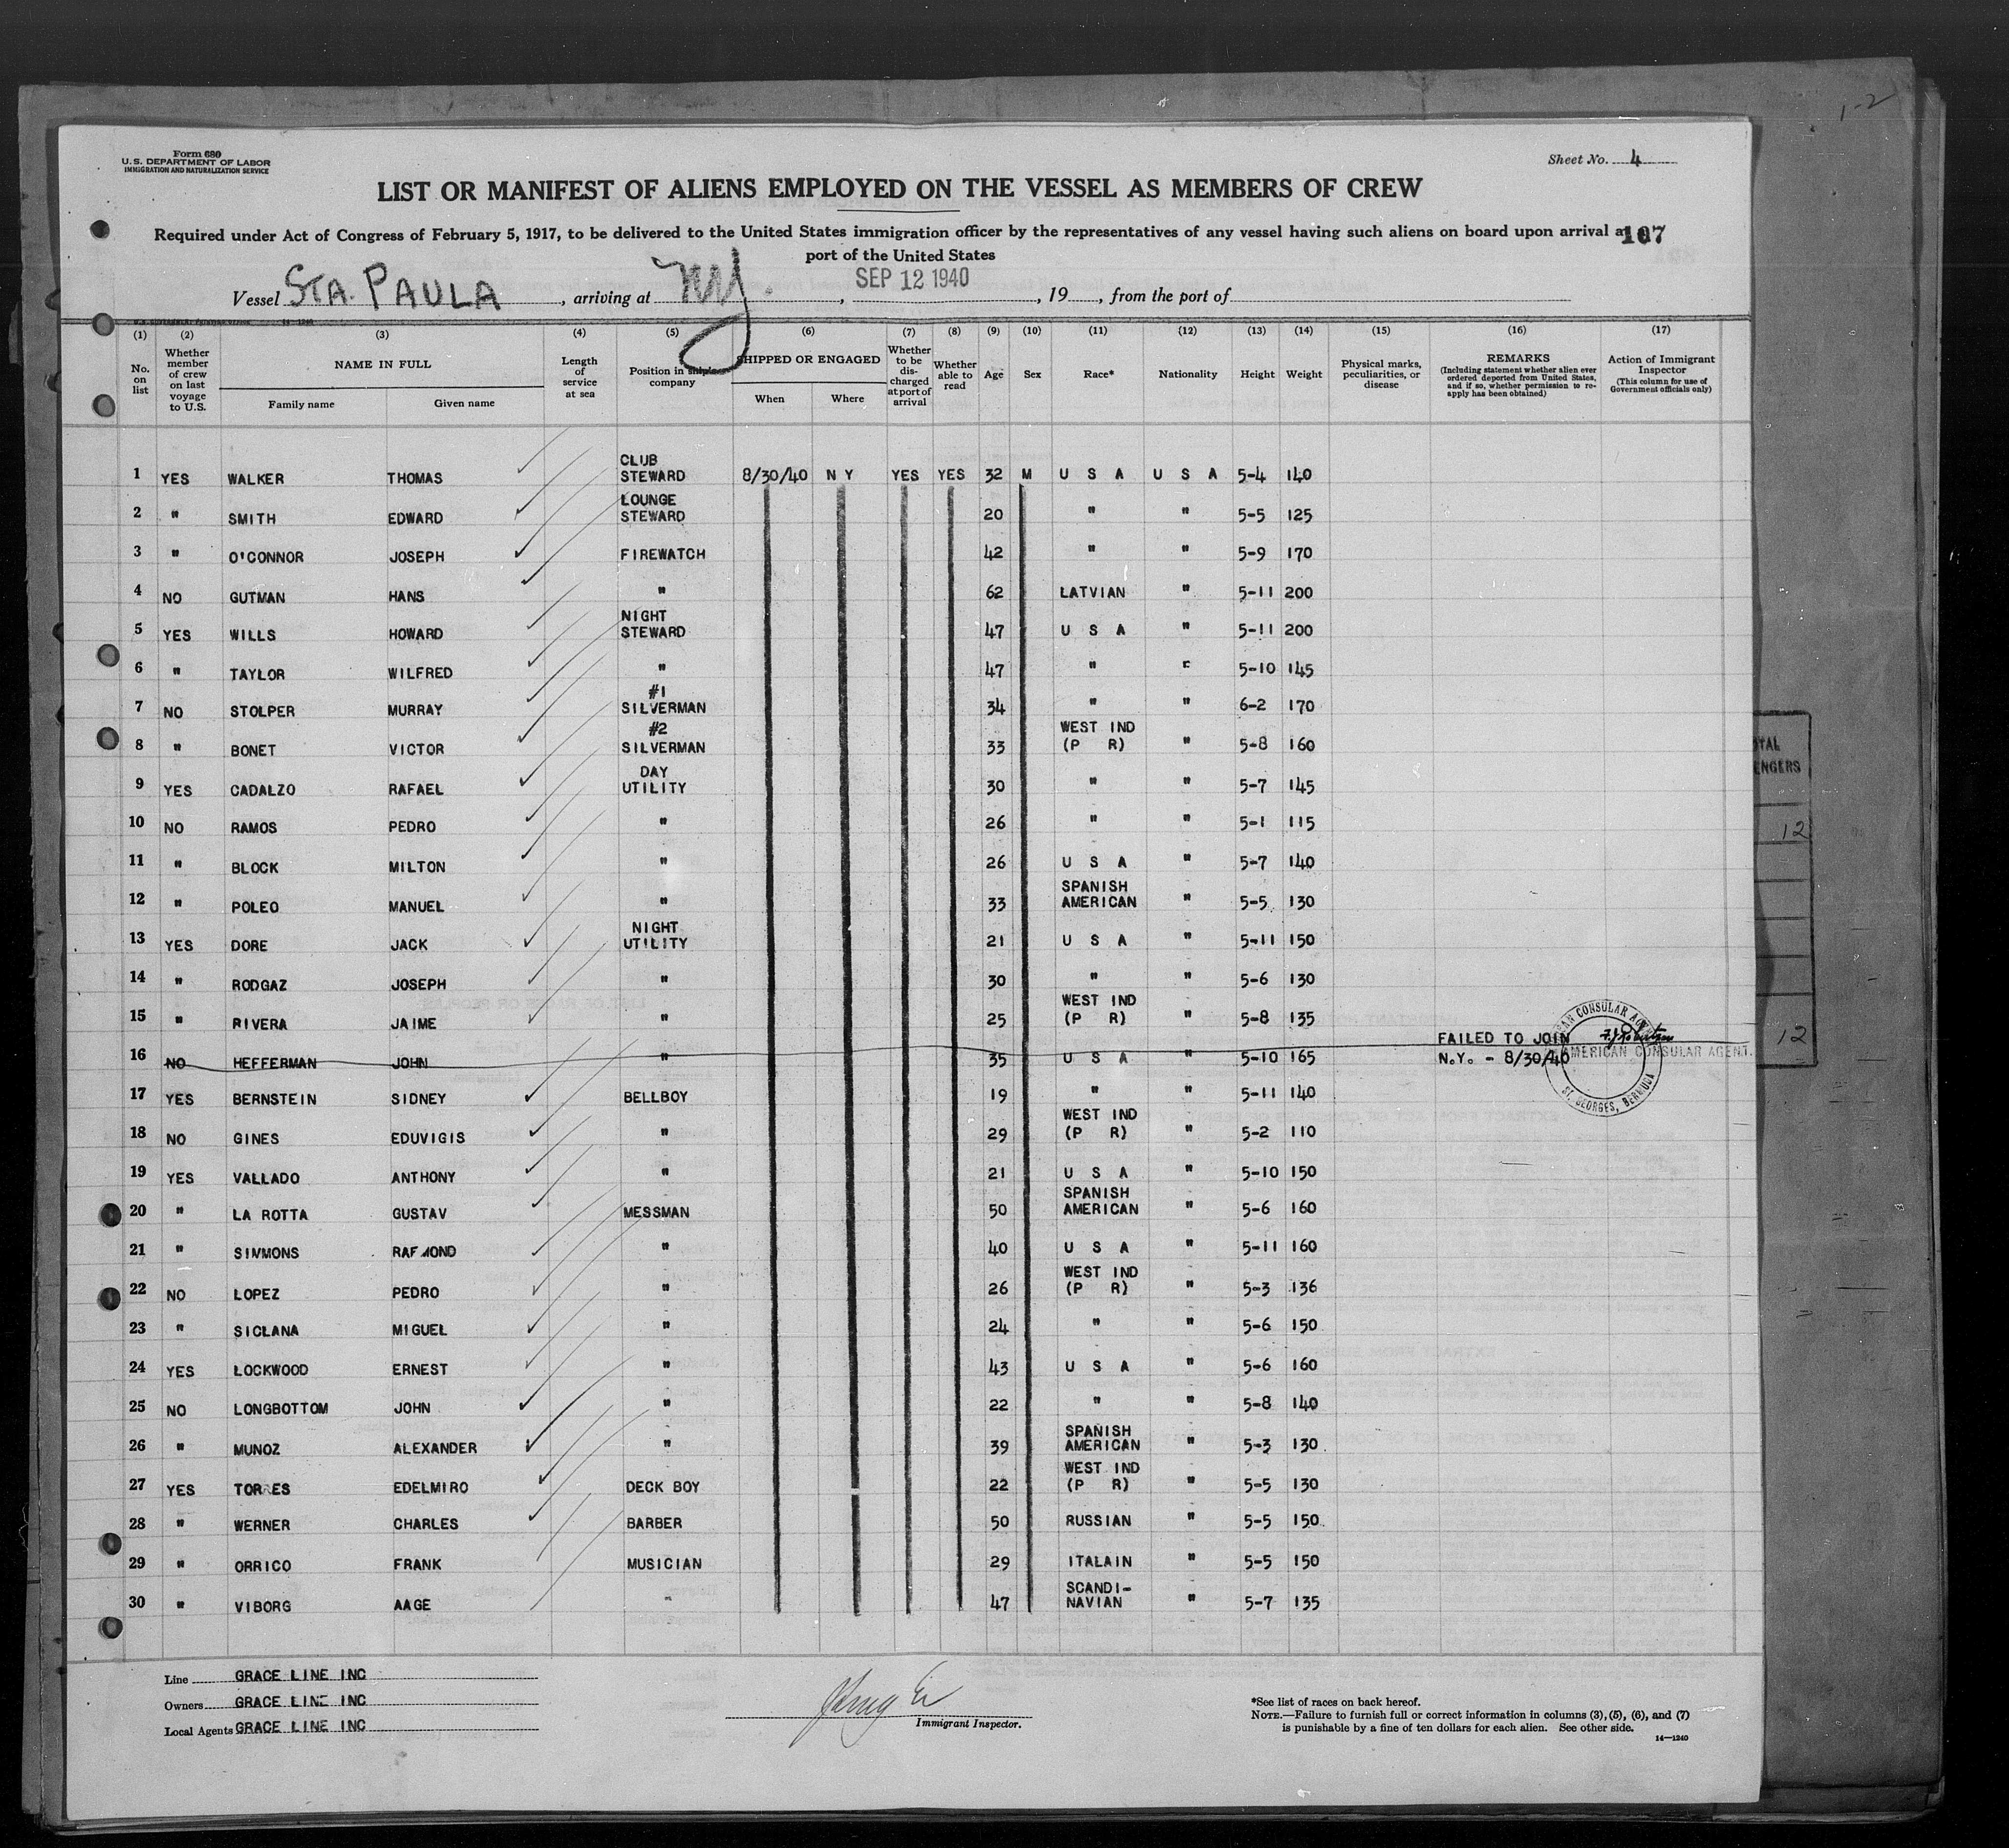 1-2
Form 680
U.S. DEPARTMENT OF LABOR
IMMIGRATION AND NATURALIZATION SERVICE
Sheet No. 4
LIST OR MANIFEST OF ALIENS EMPLOYED ON THE VESSEL AS MEMBERS OF CREW
Required under Act of Congress of February 5, 1917, to be delivered to the United States immigration officer by the representatives of any vessel having such aliens on board upon arrival a 107
port of the United States
Vessel STA. PAULA, arriving at NY., SEP 12 1940, 19, from the port of
(1) (2) (3) (4) (5) (6) (7) (8) (9) (10) (11) (12) (13) (14) (15) (16) (17)
No. on list
Whether member of crew on last voyage to U.S.
NAME IN FULL
Family name Given name
Length of service at sea
Position in ship's company
SHIPPED OR ENGAGED
When Where
Whether to be discharged at port of arrival
Whether able to read
Age
Sex
Race*
Nationality
Height
Weight
Physical marks, peculiarities, or disease
REMARKS
(Including statement whether alien ever ordered deported from United States, and if so, whether permission to reapply has been obtained)
Action of Immigrant Inspector
(This column for use of Government officials only)
1 YES WALKER THOMAS CLUB STEWARD 8/30/40 N Y YES YES 32 M U S A U S A 5-4 140
2 " SMITH EDWARD LOUNGE STEWARD 20 " " 5-5 125
3 " O'CONNOR JOSEPH FIREWATCH 42 " " 5-9 170
4 NO GUTMAN HANS " 62 LATVIAN " 5-11 200
5 YES WILLS HOWARD NIGHT STEWARD 47 U S A " 5-11 200
6 " TAYLOR WILFRED " 47 " " 5-10 145
7 NO STOLPER MURRAY #1 SILVERMAN 34 " " 6-2 170
8 " BONET VICTOR #2 SILVERMAN 33 WEST IND (P R) " 5-8 160
9 YES CADALZO RAFAEL DAY UTILITY 30 " " 5-7 145
10 NO RAMOS PEDRO " 26 " " 5-1 115
11 " BLOCK MILTON " 26 U S A " 5-7 140
12 " POLEO MANUEL " 33 SPANISH AMERICAN " 5-5 130
13 YES DORE JACK NIGHT UTILITY 21 U S A " 5-11 150
14 " RODGAZ JOSEPH " 30 " " 5-6 130
15 " RIVERA JAIME " 25 WEST IND (P R) " 5-8 135
16 NO HEFFERMAN JOHN " 35 U S A " 5-10 165 FAILED TO JOIN N.Y. - 8/30/40
AMERICAN CONSULAR AGENT.
ST. GEORGES, BERMUDA
17 YES BERNSTEIN SIDNEY BELLBOY 19 " " 5-11 140
18 NO GINES EDUVIGIS " 29 WEST IND (P R) " 5-2 110
19 YES VALLADO ANTHONY " 21 U S A " 5-10 150
20 " LA ROTTA GUSTAV MESSMAN 50 SPANISH AMERICAN " 5-6 160
21 " SIMMONS RAYMOND " 40 U S A " 5-11 160
22 NO LOPEZ PEDRO " 26 WEST IND (P R) " 5-3 136
23 " SICLANA MIGUEL " 24 " " 5-6 150
24 YES LOCKWOOD ERNEST " 43 U S A " 5-6 160
25 NO LONGBOTTOM JOHN " 22 " " 5-8 140
26 " MUNOZ ALEXANDER " 39 SPANISH AMERICAN " 5-3 130
27 YES TORRES EDELMIRO DECK BOY 22 WEST IND (P R) " 5-5 130
28 " WERNER CHARLES BARBER 50 RUSSIAN " 5-5 150
29 " ORRICO FRANK MUSICIAN 29 ITALAIN " 5-5 150
30 " VIBORG AAGE " 47 SCANDI-NAVIAN " 5-7 135
Line GRACE LINE INC
Owners GRACE LINE INC
Local Agents GRACE LINE INC
Immigrant Inspector.
*See list of races on back hereof.
NOTE.—Failure to furnish full or correct information in columns (3), (5), (6), and (7)
is punishable by a fine of ten dollars for each alien. See other side.
14—1240
12
12